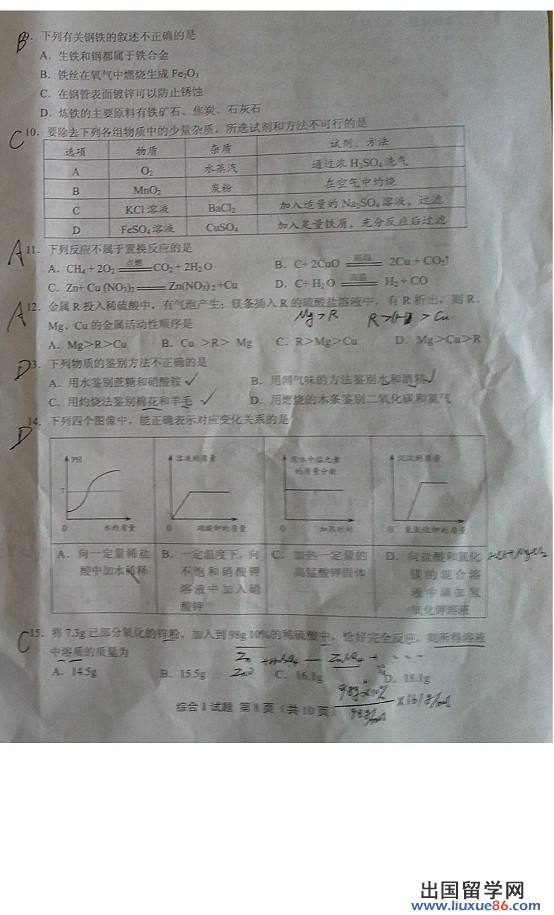 B 9. 下列有关钢铁的叙述不正确的是
A. 生铁和钢都属于铁合金
B. 铁丝在氧气中燃烧生成 Fe₂O₃
C. 在钢管表面镀锌可以防止锈蚀
D. 炼铁的主要原料有铁矿石、焦炭、石灰石
C 10. 要除去下列各组物质中的少量杂质，所选试剂和方法不可行的是
选项 物质 杂质 试剂、方法
A O₂ 水蒸汽 通过浓 H₂SO₄ 洗气
B MnO₂ 炭粉 在空气中灼烧
C KCl 溶液 BaCl₂ 加入适量的 Na₂SO₄ 溶液，过滤
D FeSO₄ 溶液 CuSO₄ 加入足量铁屑，充分反应后过滤
A 11. 下列反应不属于置换反应的是
A. CH₄ + 2O₂ 点燃 CO₂ + 2H₂O B. C+ 2CuO 高温 2Cu + CO₂↑
C. Zn+ Cu (NO₃)₂ Zn(NO₃)₂ +Cu D. C+ H₂O 高温 H₂ + CO
A 12. 金属 R 投入稀硫酸中，有气泡产生；镁条插入 R 的硫酸盐溶液中，有 R 析出，则 R、
Mg>R R>(H)>Cu
Mg、Cu 的金属活动性顺序是
A. Mg>R>Cu B. Cu >R> Mg C. R>Mg>Cu D. Mg>Cu>R
D 13. 下列物质的鉴别方法不正确的是
A. 用水鉴别蔗糖和硝酸铵 ✓ B. 用闻气味的方法鉴别水和酒精 ✓
C. 用灼烧法鉴别棉花和羊毛 ✓ D. 用燃烧的木条鉴别二氧化碳和氮气
D 14. 下列四个图像中，能正确表示对应变化关系的是
PH 7 0 水的质量
溶液的质量 0 硝酸钾的质量
固体中锰元素的质量分数 0 加热时间
沉淀的质量 0 氢氧化钾的质量
A. 向一定量稀盐酸中加水稀释
B. 一定温度下，向不饱和硝酸钾溶液中加入硝酸钾
C. 加热一定量的高锰酸钾固体
D. 向盐酸和氯化镁的混合溶液中滴加氢氧化钾溶液
C 15. 将 7.3g 已部分氧化的锌粉，加入到 98g 10%的稀硫酸中，恰好完全反应，则所得溶液
中溶质的质量为
A. 14.5g B. 15.5g C. 16.1g D. 18.1g
98g×10%
98g/mol
×161g/mol
综合 I 试题 第 8 页（共 10 页）
出国留学网
www.liuxue86.com